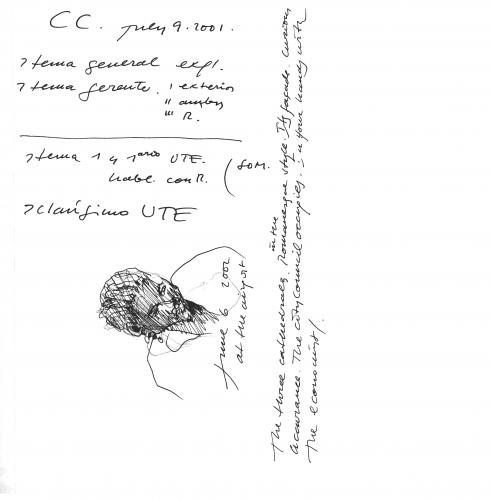 CC. July 9. 2001.
> tema general expl.
> tema gerente. ' exterior
" ambos
"' R.
> tema 1 y 1ario UTE.
hable con R.
(SOM.
> clarísimo UTE
June 6 2002
at the airport/
The three cathedrals. in the Romanesque style. façade. curious
assurance. The city council occupies. in your hands with
the economist/.